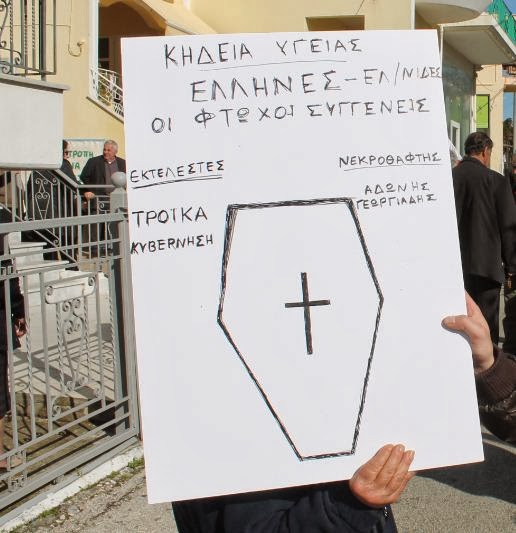 ΚΗΔΕΙΑ ΥΓΕΙΑΣ
ΕΛΛΗΝΕΣ - ΕΛ/ΝΙΔΕΣ
ΟΙ ΦΤΩΧΟΙ ΣΥΓΓΕΝΕΙΣ
ΕΚΤΕΛΕΣΤΕΣ
ΤΡΟΪΚΑ
ΚΥΒΕΡΝΗΣΗ
ΝΕΚΡΟΘΑΦΤΗΣ
ΑΔΩΝΗΣ
ΓΕΩΡΓΙΑΔΗΣ